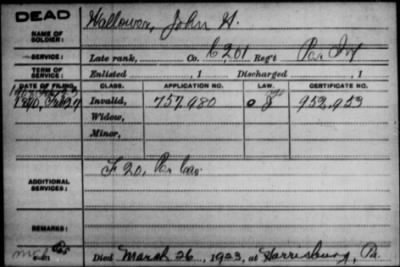 DEAD
NAME OF SOLDIER: Hallower, John H.
SERVICE: Late rank, Co. C, 201 Reg't Pa Inf
TERM OF SERVICE: Enlisted , 1 Discharged , 1
DATE OF FILING. CLASS. APPLICATION NO. LAW. CERTIFICATE NO.
1890, Invalid, 757,980 952,953
Widow,
Minor,
ADDITIONAL SERVICES: F 20, Pa Cav
REMARKS:
Died March 26, 1923, at Harrisburg, Pa.